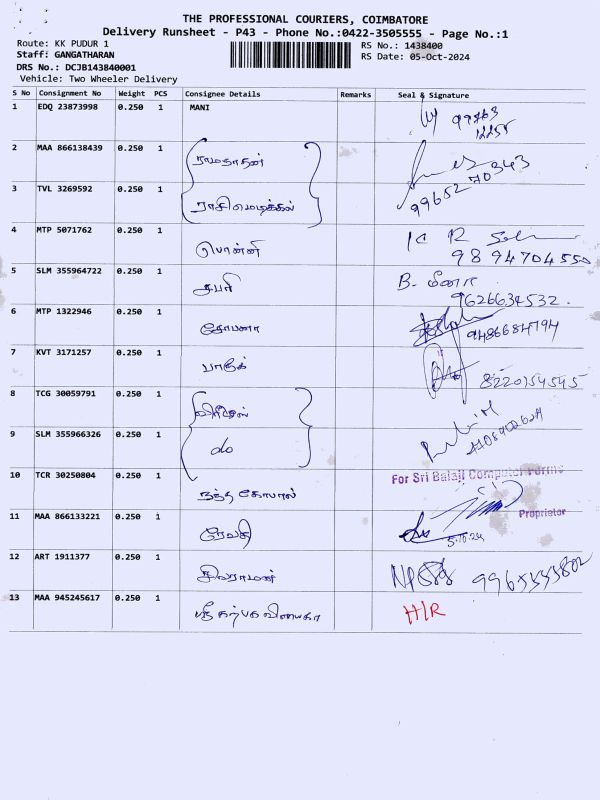 THE PROFESSIONAL COURIERS, COIMBATORE
Delivery Runsheet - P43 - Phone No.:0422-3505555 - Page No.:1
Route: KK PUDUR 1
RS No.: 1438400
Staff: GANGATHARAN
RS Date: 05-Oct-2024
DRS No.: DCJB143840001
Vehicle: Two Wheeler Delivery
S No Consignment No Weight PCS Consignee Details Remarks Seal & Signature
1 EDQ 23873998 0.250 1 MANI
2 MAA 866138439 0.250 1 ராமநாதன்
99652 70343
3 TVL 3269592 0.250 1
4 MTP 5071762 0.250 1 பொன்னி
98 94704550
5 SLM 355964722 0.250 1 சபரி B. மீனா
9626634532.
6 MTP 1322946 0.250 1 கோபனா
9486684794
7 KVT 3171257 0.250 1
8220154545
8 TCG 30059791 0.250 1
9 SLM 355966326 0.250 1 do
10 TCR 30250804 0.250 1 நந்த கோபால் For Sri Balaji Computer Forms
11 MAA 866133221 0.250 1 ரேவதி Proprietor
5.10.24
12 ART 1911377 0.250 1 சிவராமன் 9965555802
13 MAA 945245617 0.250 1 ஸ்ரீ கற்பக விநாயகா H/R